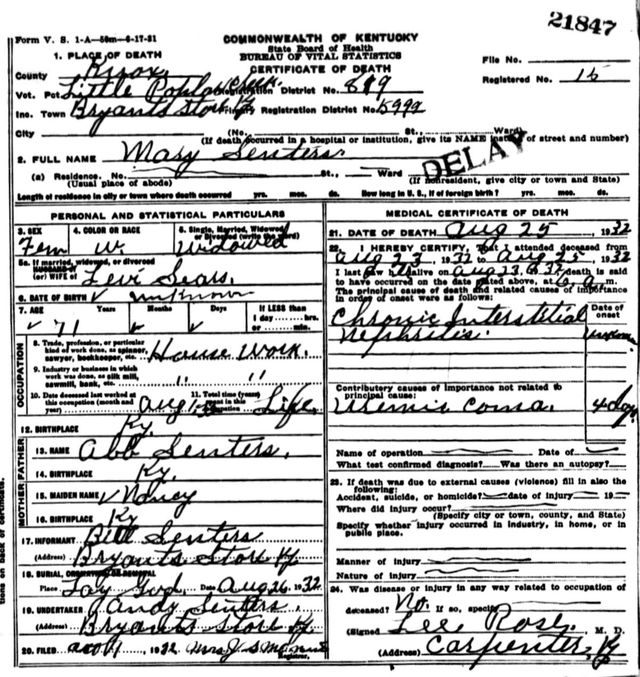 21847
Form V. S. 1-A—50m—6-17-31
COMMONWEALTH OF KENTUCKY
State Board of Health
BUREAU OF VITAL STATISTICS
CERTIFICATE OF DEATH
1. PLACE OF DEATH
File No.
County Knox
Registered No. 15
Vot. Pct. Little Poplar Creek Registration District No. 819
Inc. Town Bryants Store Ky Primary Registration District No. 5999
City (No. St., Ward)
(If death occurred in a hospital or institution, give its NAME instead of street and number)
2. FULL NAME Mary Senters
DELAY
(a) Residence. No. St., Ward
(Usual place of abode) (If nonresident, give city or town and State)
Length of residence in city or town where death occurred yrs. mos. ds. How long in U. S., if of foreign birth? yrs. mos. ds.
PERSONAL AND STATISTICAL PARTICULARS
3. SEX Fem
4. COLOR OR RACE W.
5. Single, Married, Widowed or Divorced (write the word) Widowed
5a. If married, widowed, or divorced
HUSBAND of
(or) WIFE of Levi Sears.
6. DATE OF BIRTH unknown
7. AGE 71 Years Months Days If LESS than
1 day hrs.
or min.
OCCUPATION
8. Trade, profession, or particular
kind of work done, as spinner,
sawyer, bookkeeper, etc. House Work.
9. Industry or business in which
work was done, as silk mill,
sawmill, bank, etc. " "
10. Date deceased last worked at
this occupation (month and
year) Aug
11. Total time (years)
spent in this
occupation Life.
12. BIRTHPLACE Ky.
FATHER
13. NAME Abb Senters.
14. BIRTHPLACE Ky.
MOTHER
15. MAIDEN NAME Nancy
16. BIRTHPLACE Ky
17. INFORMANT Bill Senters
(Address) Bryants Store Ky.
18. BURIAL, CREMATION OR REMOVAL
Place Date Aug 26 1932
19. UNDERTAKER Andy Senters.
(Address) Bryants Store Ky.
20. FILED 1932 Mrs J S
Registrar.
MEDICAL CERTIFICATE OF DEATH
21. DATE OF DEATH Aug 25, 1932
22. I HEREBY CERTIFY, That I attended deceased from
Aug 23, 1932 to Aug 25, 1932
I last saw h alive on Aug 23, 1932, death is said
to have occurred on the date stated above, at 6 a. m.
The principal cause of death and related causes of importance
in order of onset were as follows:
Date of
onset
Chronic Interstitial
Nephritis.
Contributory causes of importance not related to
principal cause:
Uremic Coma. 4 days
Name of operation Date of
What test confirmed diagnosis? Was there an autopsy?
23. If death was due to external causes (violence) fill in also the
following:
Accident, suicide, or homicide? date of injury 19
Where did injury occur?
(Specify city or town, county, and State)
Specify whether injury occurred in industry, in home, or in
public place.
Manner of injury
Nature of injury
24. Was disease or injury in any way related to occupation of
deceased? No. If so, specify
(Signed) Lee Rose, M. D.
(Address) Carpenter, Ky
tions on back of certificate.